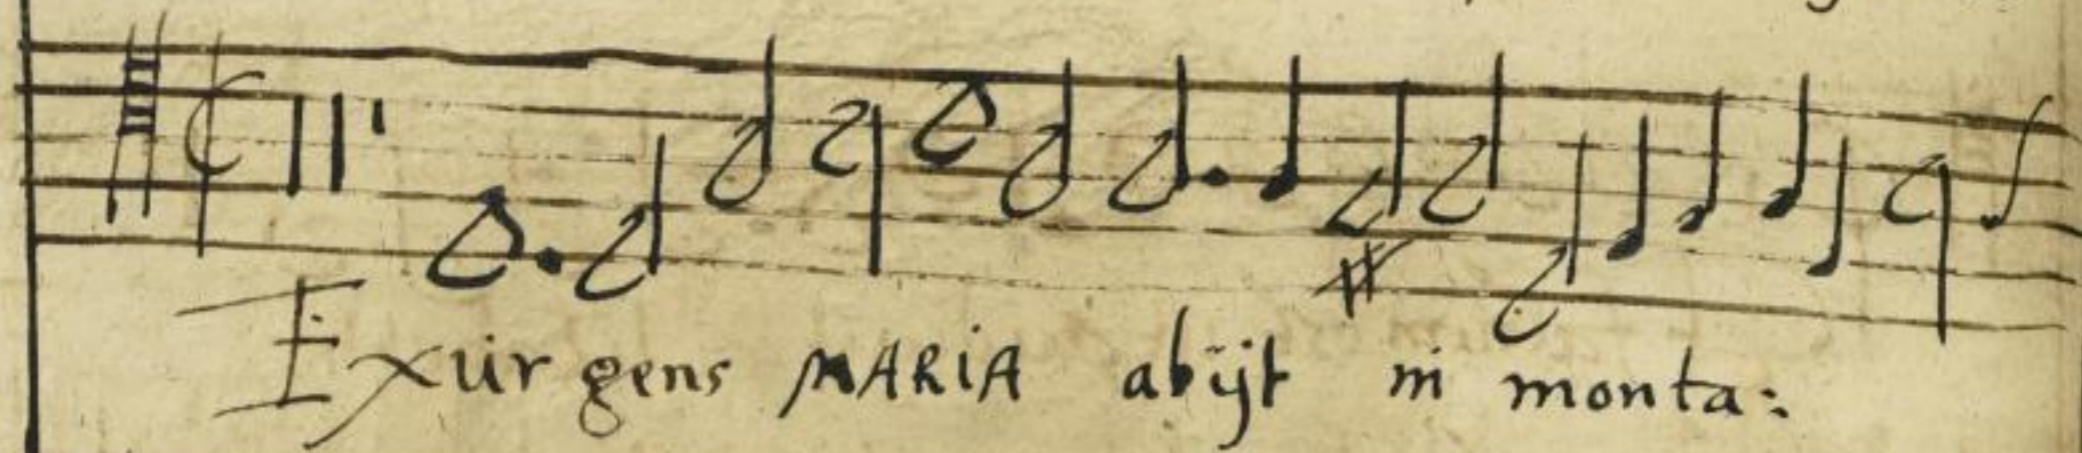 Exürgens MARIA abijt in monta: